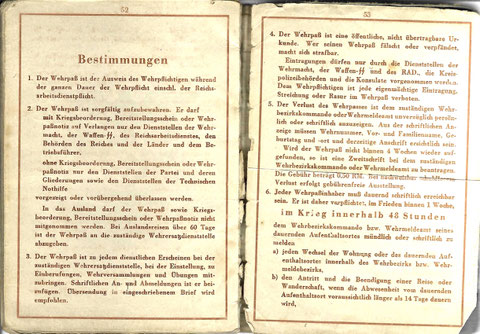 52
Bestimmungen
1. Der Wehrpaß ist der Ausweis des Wehrpflichtigen während
der ganzen Dauer der Wehrpflicht einschl. der Reichs-
arbeitsdienstpflicht.
2. Der Wehrpaß ist sorgfältig aufzubewahren. Er darf
mit Kriegsbeorderung, Bereitstellungsschein oder Wehr-
paßnotiz auf Verlangen nur den Dienststellen der Wehr-
macht, der Waffen-ϟϟ, des Reichsarbeitsdienstes, den
Behörden des Reiches und der Länder und dem Be-
triebsführer,
ohne Kriegsbeorderung, Bereitstellungsschein oder Wehr-
paßnotiz nur den Dienststellen der Partei und deren
Gliederungen sowie den Dienststellen der Technischen
Nothilfe
vorgezeigt oder vorübergehend überlassen werden.
In das Ausland darf der Wehrpaß sowie Kriegs-
beorderung, Bereitstellungsschein oder Wehrpaßnotiz nicht
mitgenommen werden. Bei Auslandsreisen über 60 Tage
ist der Wehrpaß an die zuständige Wehrersatzdienststelle
abzugeben.
3. Der Wehrpaß ist zu jedem dienstlichen Erscheinen bei der
zuständigen Wehrersatzdienststelle, bei der Einstellung, zu
Einberufungen, Wehrversammlungen und Übungen mit-
zubringen. Schriftlichen An- und Abmeldungen ist er bei-
zufügen. Übersendung in eingeschriebenem Brief wird
empfohlen.
53
4. Der Wehrpaß ist eine öffentliche, nicht übertragbare Ur-
kunde. Wer seinen Wehrpaß fälscht oder verpfändet,
macht sich strafbar.
Eintragungen dürfen nur durch die Dienststellen der
Wehrmacht, der Waffen-ϟϟ und des RAD., die Kreis-
polizeibehörden und die Konsulate vorgenommen werden.
Dem Wehrpflichtigen ist jede eigenmächtige Eintragung,
Streichung oder Rasur im Wehrpaß verboten.
5. Der Verlust des Wehrpasses ist dem zuständigen Wehr-
bezirkskommando oder Wehrmeldeamt unverzüglich persön-
lich oder schriftlich anzuzeigen. Aus der schriftlichen An-
zeige müssen Wehrnummer, Vor- und Familienname, Ge-
burtstag und -ort und derzeitige Anschrift ersichtlich sein.
Wird der Wehrpaß nicht binnen 4 Wochen wieder auf-
gefunden, so ist eine Zweitschrift bei dem zuständigen
Wehrbezirkskommando oder Wehrmeldeamt zu beantragen.
Die Gebühr beträgt 0,50 RM. Bei nachweisbar
Verlust erfolgt gebührenfreie Ausstellung.
6. Jeder Wehrpaßinhaber muß dauernd schriftlich erreichbar
sein. Er ist daher verpflichtet, im Frieden binnen 1 Woche,
im Krieg innerhalb 48 Stunden
dem Wehrbezirkskommando bzw. Wehrmeldeamt seines
dauernden Aufenthaltsortes mündlich oder schriftlich zu
melden
a) jeden Wechsel der Wohnung oder des dauernden Auf-
enthaltsortes innerhalb des Wehrbezirks bzw. Wehr-
meldebezirks.
b) den Antritt und die Beendigung einer Reise oder
Wanderschaft, wenn die Abwesenheit vom dauernden
Aufenthaltsort voraussichtlich länger als 14 Tage dauern
wird,